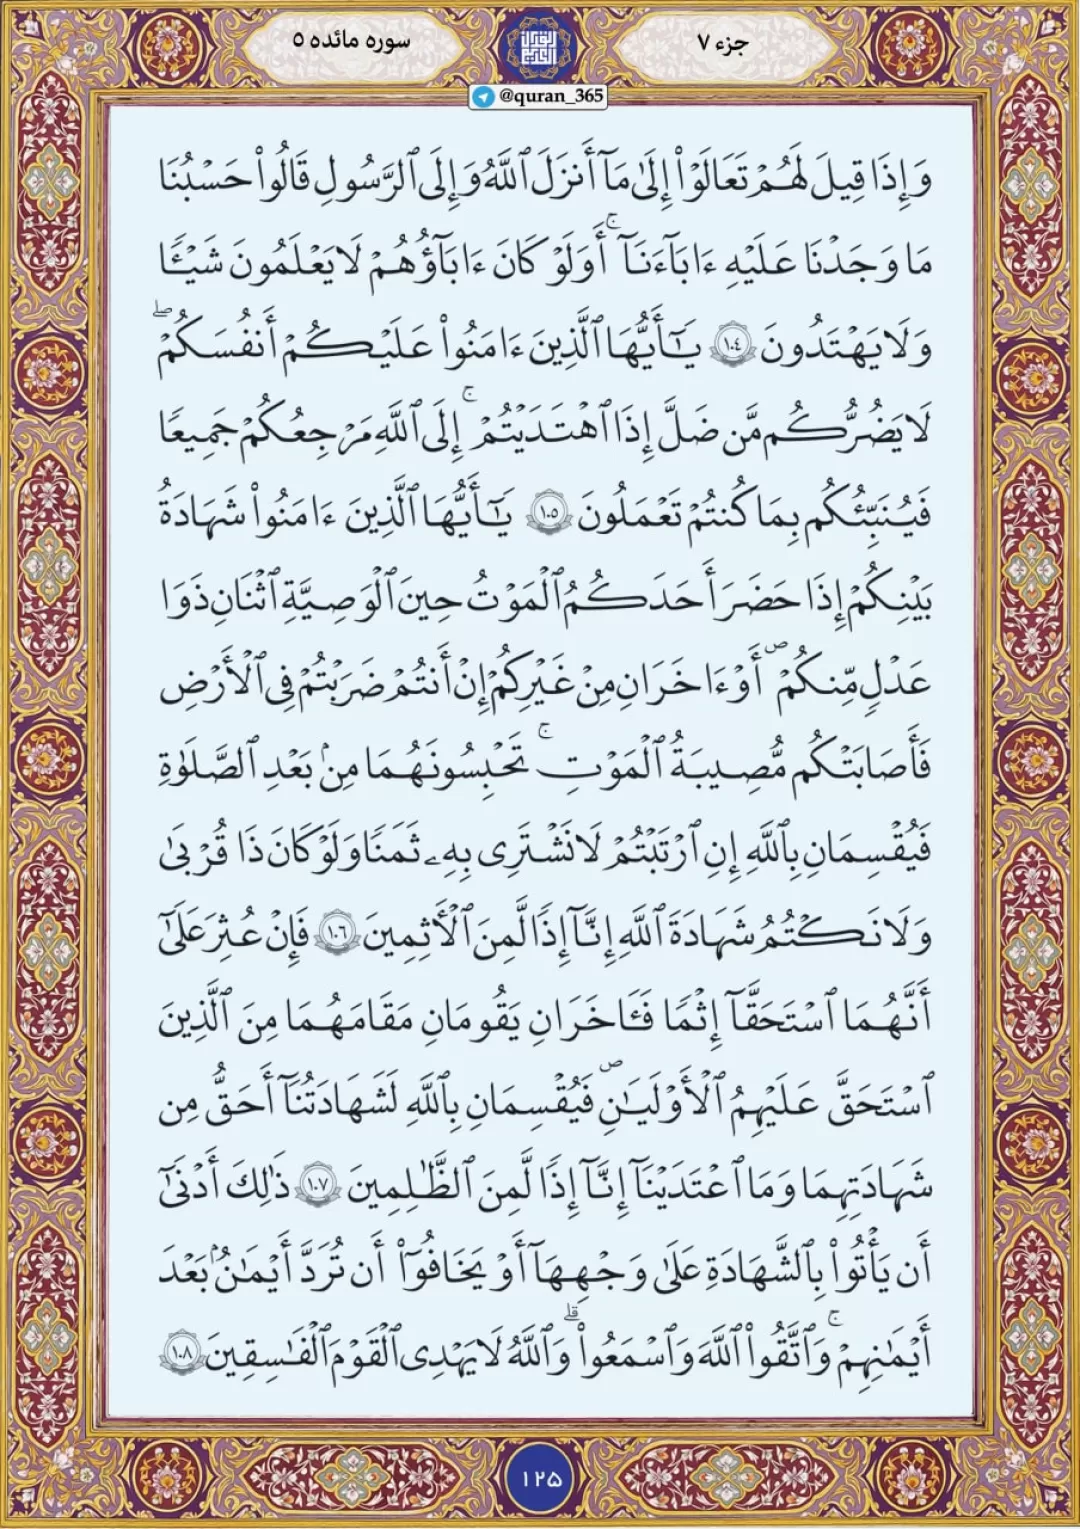 جزء ۷
سوره مائده ۵
@quran_365
وَإِذَا قِيلَ لَهُمْ تَعَالَوْا۟ إِلَىٰ مَآ أَنزَلَ ٱللَّهُ وَإِلَى ٱلرَّسُولِ قَالُوا۟ حَسْبُنَا
مَا وَجَدْنَا عَلَيْهِ ءَابَآءَنَآ ۚ أَوَلَوْ كَانَ ءَابَآؤُهُمْ لَا يَعْلَمُونَ شَيْـًٔا
وَلَا يَهْتَدُونَ ١٠٤ يَـٰٓأَيُّهَا ٱلَّذِينَ ءَامَنُوا۟ عَلَيْكُمْ أَنفُسَكُمْ ۖ
لَا يَضُرُّكُم مَّن ضَلَّ إِذَا ٱهْتَدَيْتُمْ ۚ إِلَى ٱللَّهِ مَرْجِعُكُمْ جَمِيعًا
فَيُنَبِّئُكُم بِمَا كُنتُمْ تَعْمَلُونَ ١٠٥ يَـٰٓأَيُّهَا ٱلَّذِينَ ءَامَنُوا۟ شَهَادَةُ
بَيْنِكُمْ إِذَا حَضَرَ أَحَدَكُمُ ٱلْمَوْتُ حِينَ ٱلْوَصِيَّةِ ٱثْنَانِ ذَوَا
عَدْلٍ مِّنكُمْ أَوْ ءَاخَرَانِ مِنْ غَيْرِكُمْ إِنْ أَنتُمْ ضَرَبْتُمْ فِى ٱلْأَرْضِ
فَأَصَابَتْكُم مُّصِيبَةُ ٱلْمَوْتِ ۚ تَحْبِسُونَهُمَا مِنۢ بَعْدِ ٱلصَّلَوٰةِ
فَيُقْسِمَانِ بِٱللَّهِ إِنِ ٱرْتَبْتُمْ لَا نَشْتَرِى بِهِۦ ثَمَنًا وَلَوْ كَانَ ذَا قُرْبَىٰ
وَلَا نَكْتُمُ شَهَادَةَ ٱللَّهِ إِنَّآ إِذًا لَّمِنَ ٱلْـَٔاثِمِينَ ١٠٦ فَإِنْ عُثِرَ عَلَىٰٓ
أَنَّهُمَا ٱسْتَحَقَّآ إِثْمًا فَـَٔاخَرَانِ يَقُومَانِ مَقَامَهُمَا مِنَ ٱلَّذِينَ
ٱسْتَحَقَّ عَلَيْهِمُ ٱلْأَوْلَيَـٰنِ فَيُقْسِمَانِ بِٱللَّهِ لَشَهَادَتُنَآ أَحَقُّ مِن
شَهَادَتِهِمَا وَمَا ٱعْتَدَيْنَآ إِنَّآ إِذًا لَّمِنَ ٱلظَّـٰلِمِينَ ١٠٧ ذَٰلِكَ أَدْنَىٰٓ
أَن يَأْتُوا۟ بِٱلشَّهَادَةِ عَلَىٰ وَجْهِهَآ أَوْ يَخَافُوٓا۟ أَن تُرَدَّ أَيْمَـٰنٌۢ بَعْدَ
أَيْمَـٰنِهِمْ ۚ وَٱتَّقُوا۟ ٱللَّهَ وَٱسْمَعُوا۟ ۗ وَٱللَّهُ لَا يَهْدِى ٱلْقَوْمَ ٱلْفَـٰسِقِينَ ١٠٨
۱۲۵